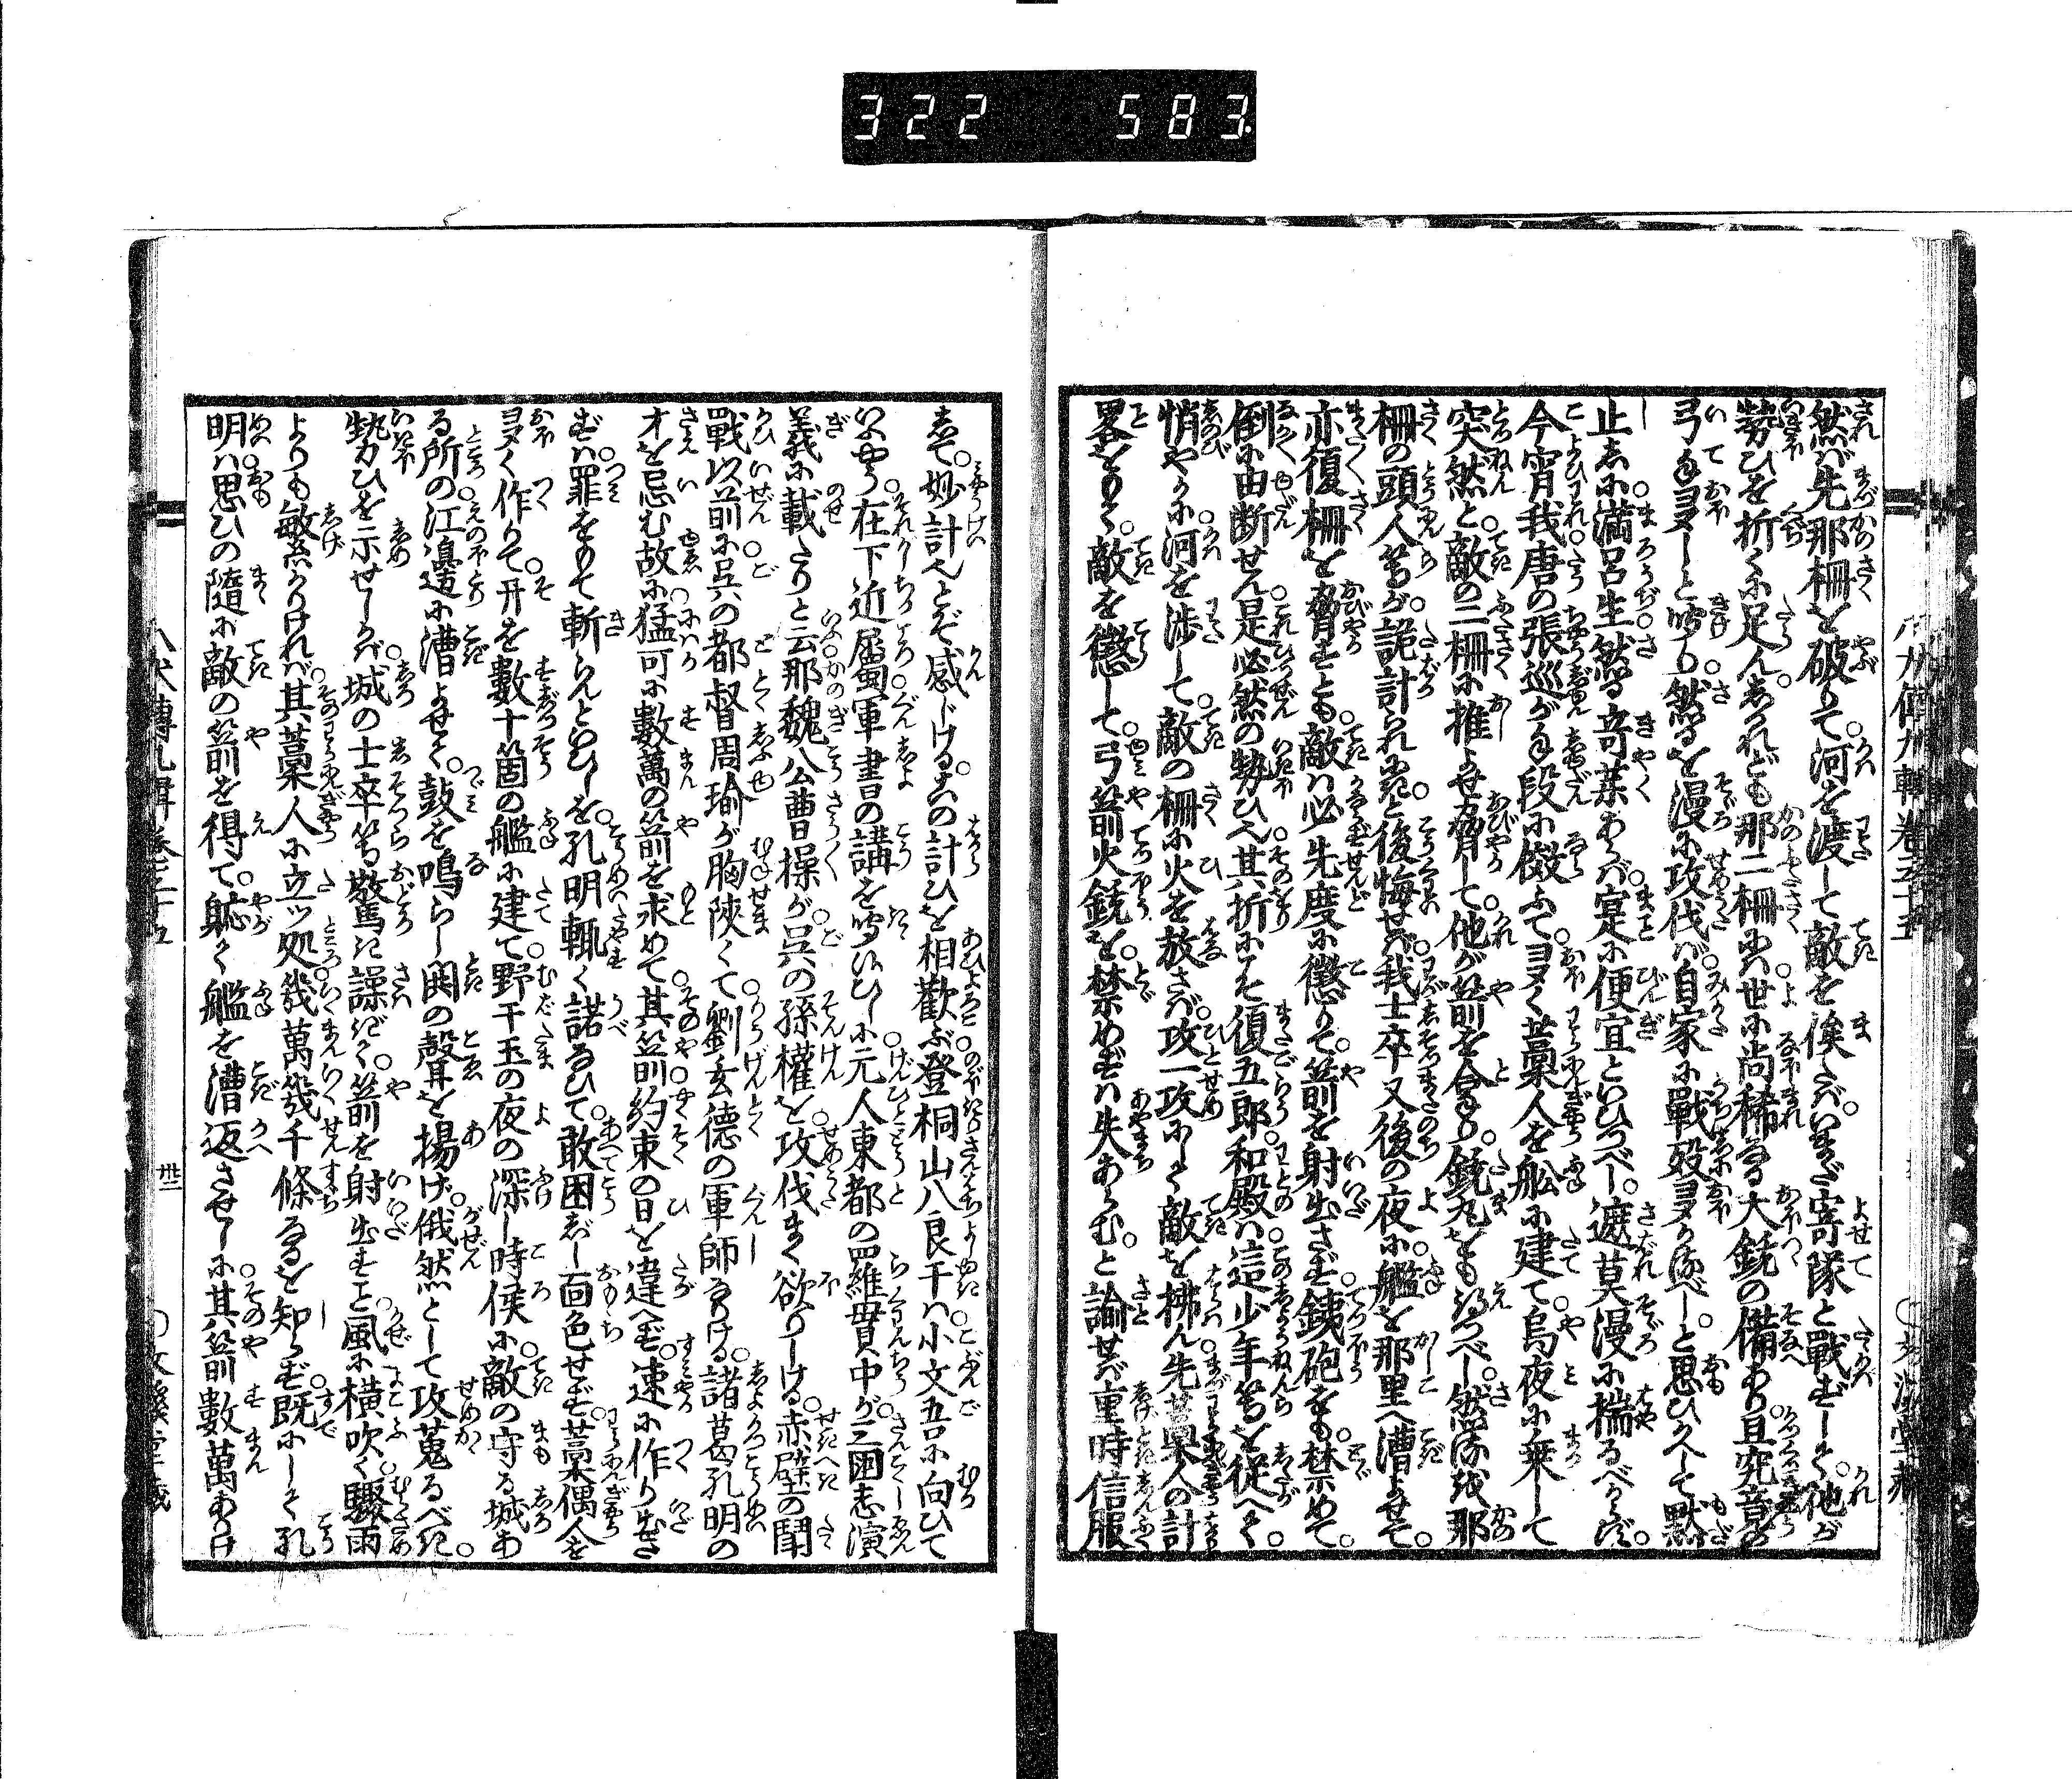 322 583
然ば先那柵を破りて河を渡して敵を俟ば。いまだ寄隊と戰ずして。他が
勢ひを折くに足ん。しかれども那二柵には世に尚稀なる大銃の備あり。且究竟の
弓手多しと聞り。然るを漫に攻伐ば自家に戰歿多かるべしと思ひ久して默
止しに滿呂生然る奇策あらば。寔に便宜といひつべし。遮莫漫に惴るべからず。
今宵我唐の張巡が手段に傚ふて。多く藁人を舩に建て烏夜に乗して
突然と敵の二柵に推よせ脅して他が箭を拿り。銃丸をも得つべし。然ば那
柵の頭人等が詭計られにきと後悔せば我士卒又後の夜に艦を那里へ漕よせて。
亦復柵を脅すとも敵は必先度に懲りて箭を射出さず。銕砲をも禁めて。
倒に由断せん。是必然の勢ひ也。其折にこそ復五郎和殿は這少年等を從へて。
悄やかに河を渉して。敵の柵に火を放さば。攻一攻にして敵を拂ん。先藁人の計
畧をもて。敵を懲して。弓箭火銃を。禁めずは失あらむ。と諭せば重時信服
して。妙計也とぞ感じける。この計ひを相歡ぶ登桐山八良干は小文吾に向ひて
いふやう。在下近屬軍書の講を聞侍ひしに。元人東都の羅貫中が三國志演
義に載たりと云。那魏公曹操が呉の孫權を攻伐まく欲りしける。赤壁の鬪
戰以前に呉の都督周瑜が胸陝くて劉玄德の軍師なりける。諸葛孔明の
才を忌む故に猛可に數萬の箭を求めて其箭約束の日を違へず。速に作り出さ
ずは罪をもて斬らんといひしを。孔明輙く諾なひて。敢困じし面色せず藁偶人を
多く作りて。丹を數十箇の艦に建て。野干玉の夜の深し時候に。敵の守る城あ
る所の江邊に漕よせて。鼓を鳴らし鬨の聲を揚げ。俄然として攻蒐るべき。
勢ひを示せしかば。城の士卒等驚き譟ぎて。箭を射出すこと。風に横吹く驟雨
よりも敏繁かりければ。其藁人に立ツ処。幾萬幾千條なるを知らず。既にして孔
明は思ひの隨に敵の箭を得て。躮く艦を漕返させしに其箭數萬ありけ
八犬傳九輯卷三十五
卅二
文溪堂藏